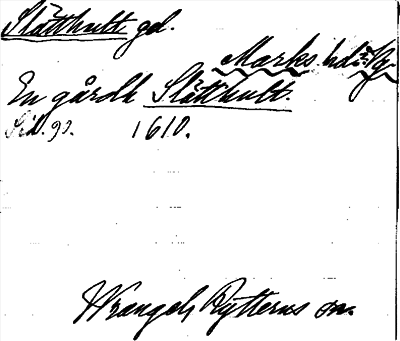 Slätthult gd.
Marks hd:
En gård Slätthult.
Sid. 93. 1610.
Wrangel, Rytterns m.